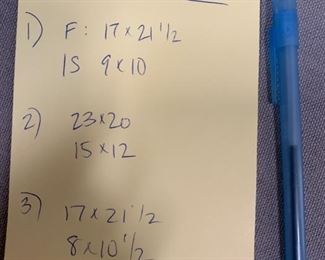 1) F: 17 x 21 1/2
IS 9 x 10
2) 23 x 20
15 x 12
3) 17 x 21 1/2
8 x 10 1/2